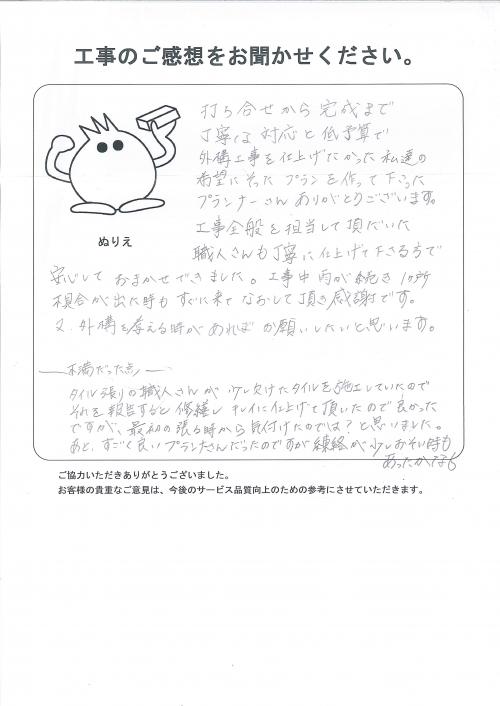 工事のご感想をお聞かせください。
打ち合せから完成まで
丁寧な対応と低予算で
外構工事を仕上げたかった私達の
希望にそったプランを作って下さった
プランナーさんありがとうございます。
工事全般を担当して頂だいた
職人さんも丁寧に仕上げて下さる方で
ぬりえ
安心しておまかせできました。工事中雨が続き1ヶ所
損合が出た時もすぐに来てなおして頂き感謝です。
又、外構を考える時があればお願いしたいと思います。
不満だった点
タイル張りの職人さんが少し欠けたタイルを施工していたので
それを報告すると修繕しキレイに仕上げて頂いたので良かった
ですが、最初の張る時から気付けたのでは?と思いました。
あと、すごく良いプランナさんだったのですが練絡が少しおそい時も
あったかなぁ
ご協力いただきありがとうございました。
お客様の貴重なご意見は、今後のサービス品質向上のための参考にさせていただきます。